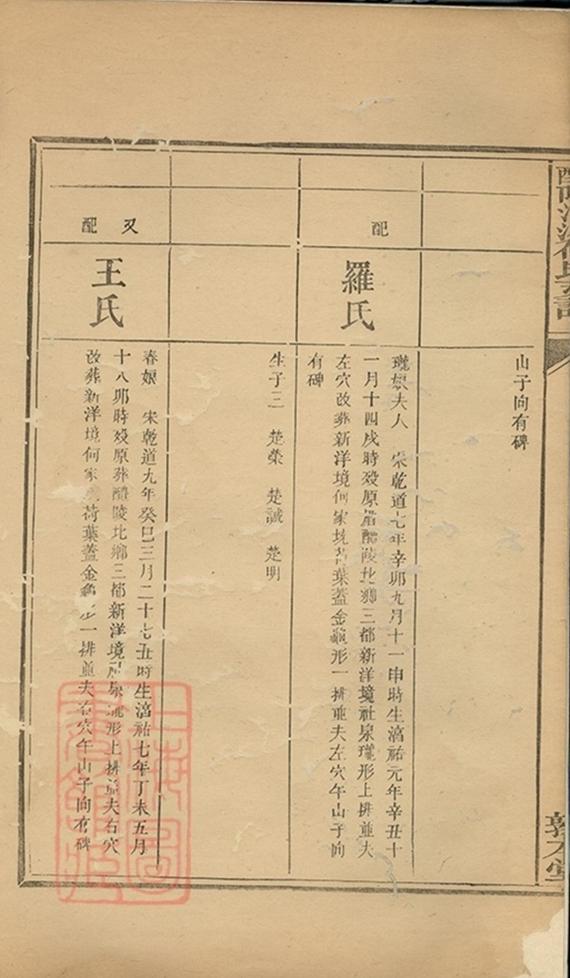 山子向有碑
配
羅氏
瓏娘夫人　宋乾道七年辛卯九月十一申時生湻祐元年辛丑十
一月十四戌時殁原醴陵北鄉三都新洋境社泉瓏形上排並夫
左穴改葬新洋境何家荷葉蓋金龜形一排並夫左穴午山子向
有碑
生子三　楚榮　楚誠　楚明
又配
王氏
春娘　宋乾道九年癸巳三月二十七丑時生湻祐七年丁未五月
十八卯時殁原葬醴陵北鄉三都新洋境泉瓏形上排並夫右穴
改葬新洋境何家荷葉蓋金一排並夫右穴午山子向有碑